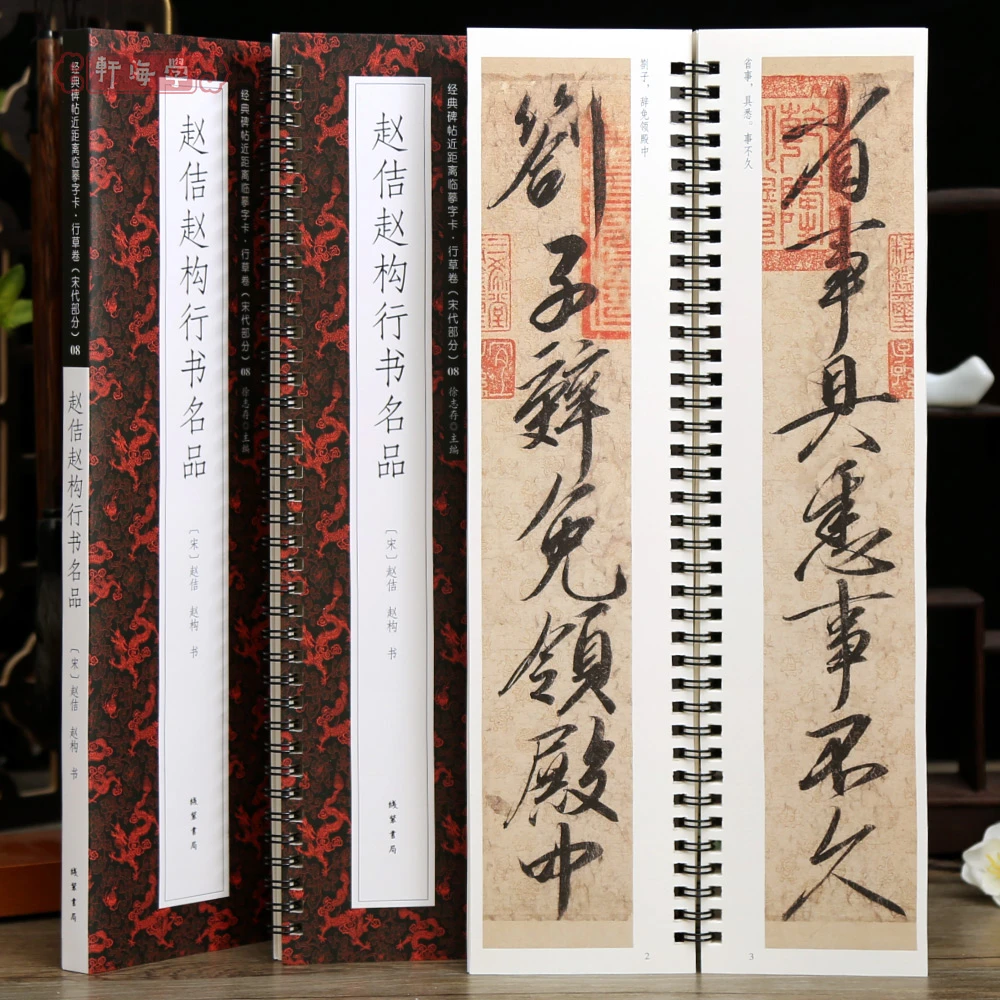 軒海学
经典碑帖近距离临摹字卡·行草卷（宋代部分）08
赵佶赵构行书名品
〔宋〕赵佶 赵构 书
线装书局
赵佶赵构行书名品
〔宋〕赵佶 赵构 书
线装书局
经典碑帖近距离临摹字卡·行草卷（宋代部分）08 徐志存◎主编
赵佶赵构行书名品
〔宋〕赵佶 赵构 书
线装书局
经典碑帖近距离临摹字卡·行草卷（宋代部分）08 徐志存◎主编
劄子辞免领殿中
劄子，辞免领殿中
2
省事具悉事不久
省事，具悉。事不久
3